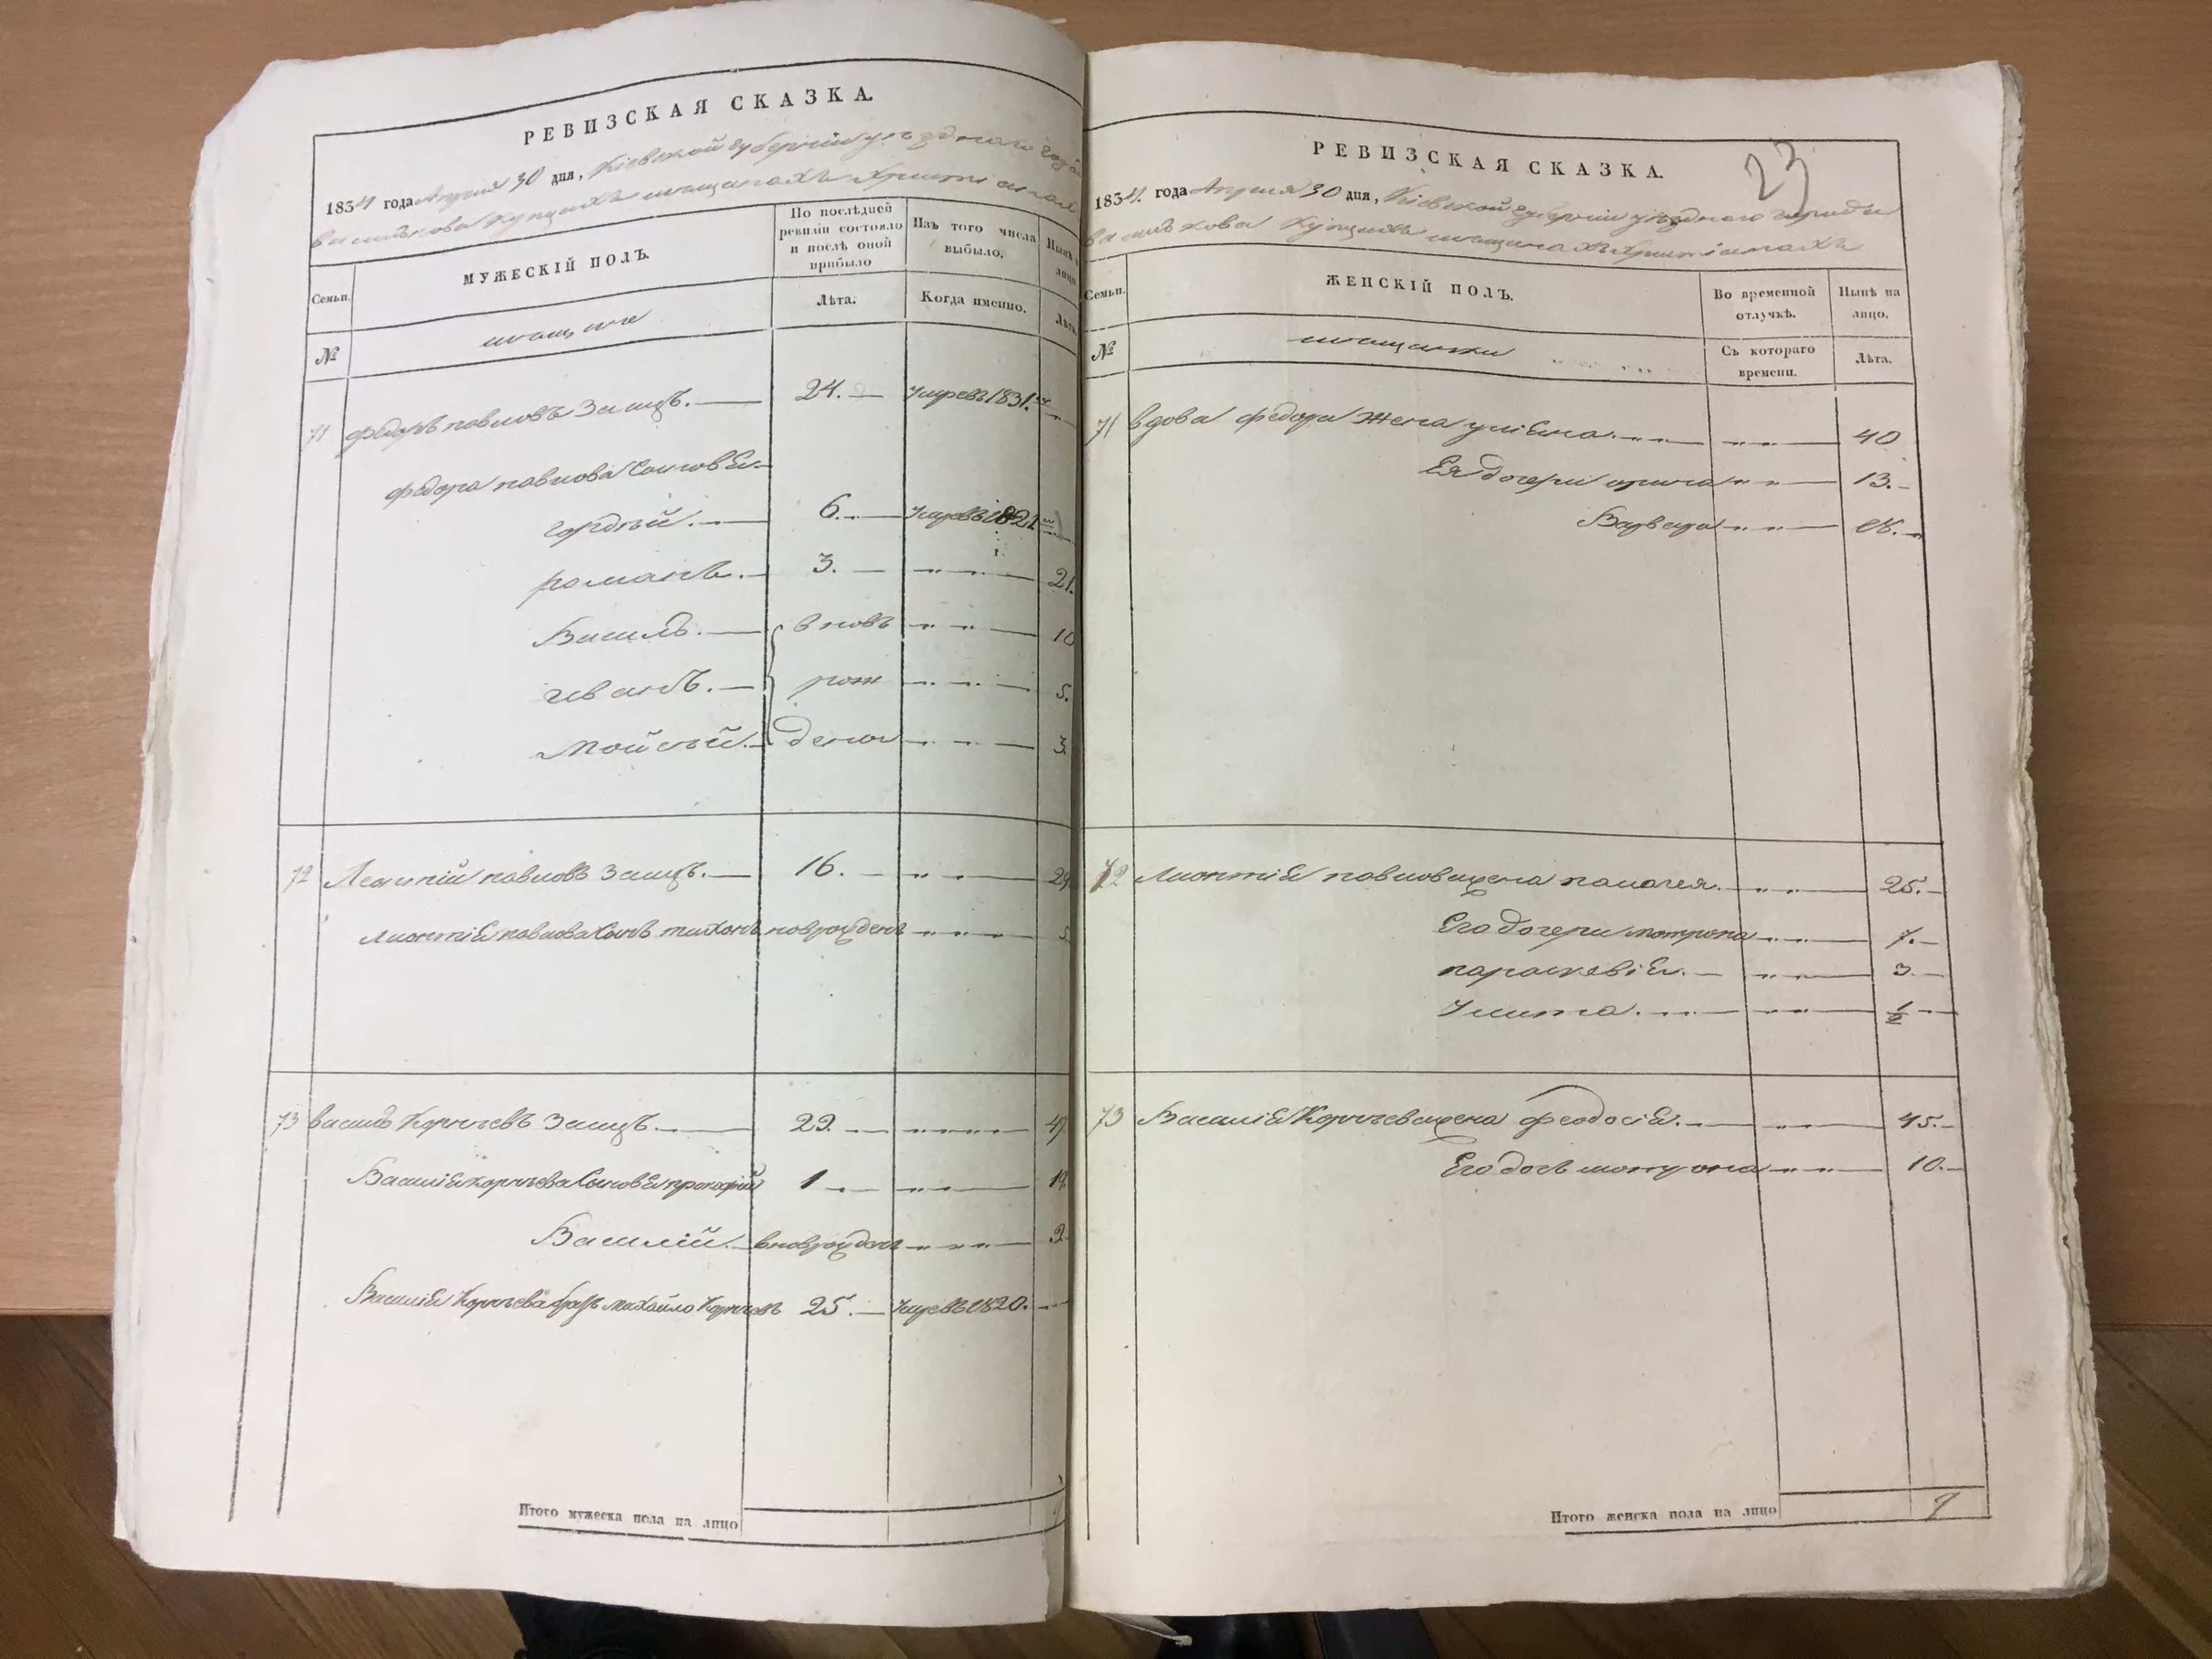 РЕВИЗСКАЯ СКАЗКА.
1834 года Апреля 30 дня, Кіевской губерніи уезднаго
василькова купцахъ мещанахъ христіанах
Семьи.
МУЖЕСКІЙ ПОЛЪ.
По послѣдней ревизіи состояло и послѣ оной прибыло
Изъ того числа выбыло.
Нынѣ на лицо
Лѣта.
Когда именно.
Лѣта
№
мещане
71 федоръ павловъ Заицъ. 24. Умревъ 1831.
федора павлова Сыновья
гордѣй. 6. Умревъ 1821
романъ. 3. 21.
Василь. вновь 10
иванъ. рож 5.
Мойсей. дены 3
72 Леонтій павловъ Заицъ. 16. 29
Лионтія павлова Сынъ тихонъ новрожденъ 5
73 василь Корнеевъ Заицъ 29. 47.
Василія корнеева Сыновья прокофий 1 19.
Василій. вноврожден 2
Василія Корнеева братъ михайло Корнеевъ 25. Умревъ 1820.
Итого мужеска пола на лицо
РЕВИЗСКАЯ СКАЗКА.
23
1834. года Апреля 30 дня, Кіевской губерніи уезднаго города
василькова купцахъ мещанахъ христіанахъ
Семьи.
ЖЕНСКІЙ ПОЛЪ.
Во временной отлучкѣ.
Нынѣ на лицо.
№
мещанки
Съ котораго времени.
Лѣта.
71 вдова федора Жена улияна. 40
Ея дочери ирина 13.
Варвара 18.
72 Лионтія павлова жена палагея. 25.
Его дочери мотрона 7.
параскевія. 3
Улита. 1/2
73 Василія Корнеева жена феодосія. 45.
Его дочь мотрона 10.
Итого женска пола на лицо 9